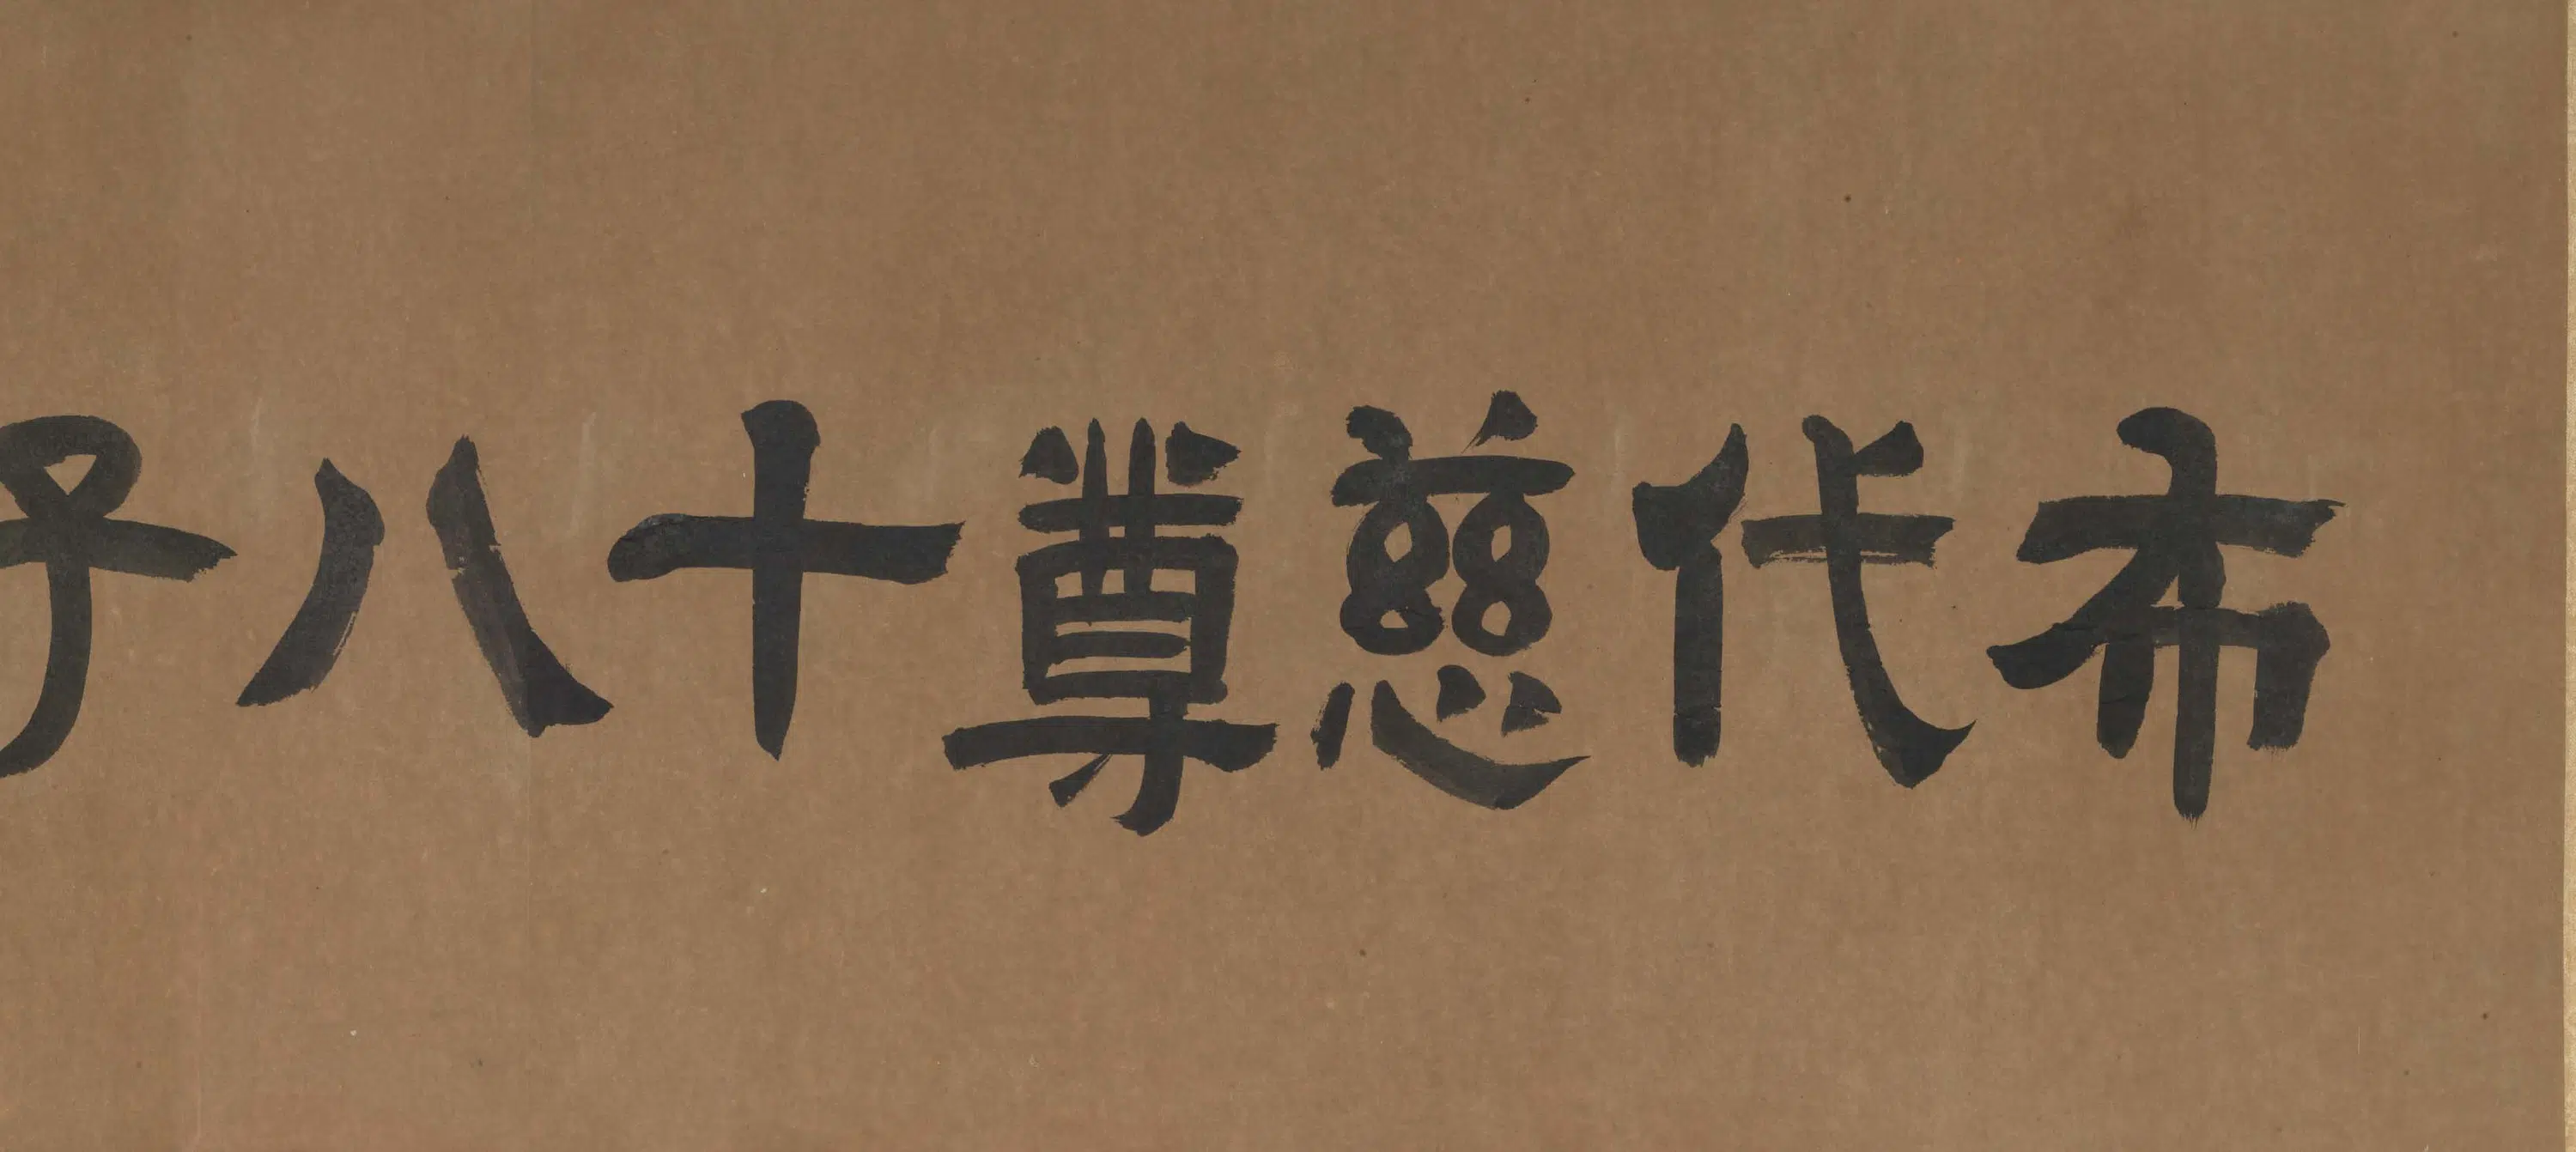 布代慈尊十八子